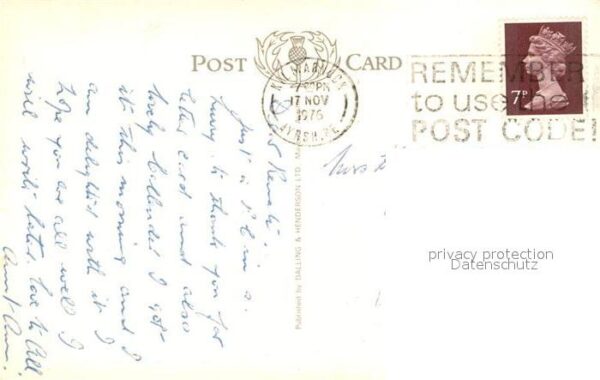 POST CARD
KILMARNOCK
PM
17 NOV
1976
AYRSHIRE
REMEMBER
to use the
POST CODE
7P
Just a p.c. in a
hurry to thank you for
letter card and also
lovely Calendar I got
it this morning and I
am delighted with it I
hope you are all well I
will write later love to All
Aunt Ann.
Published by DALLING & HENDERSON LTD.
privacy protection
Datenschutz